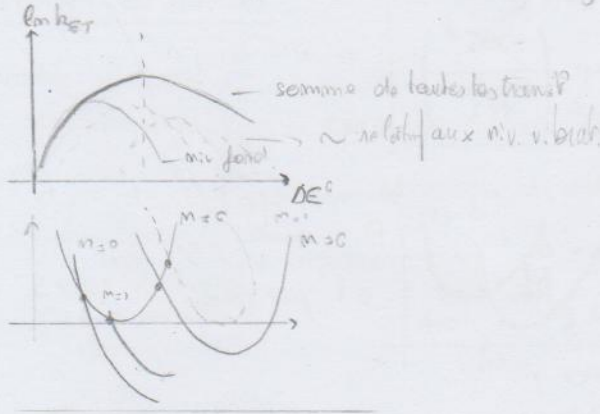 ln k_ET
semme de toutes les transit°
~ relatif aux niv. vibrat.
niv fond
ΔE°
n=0
n=1